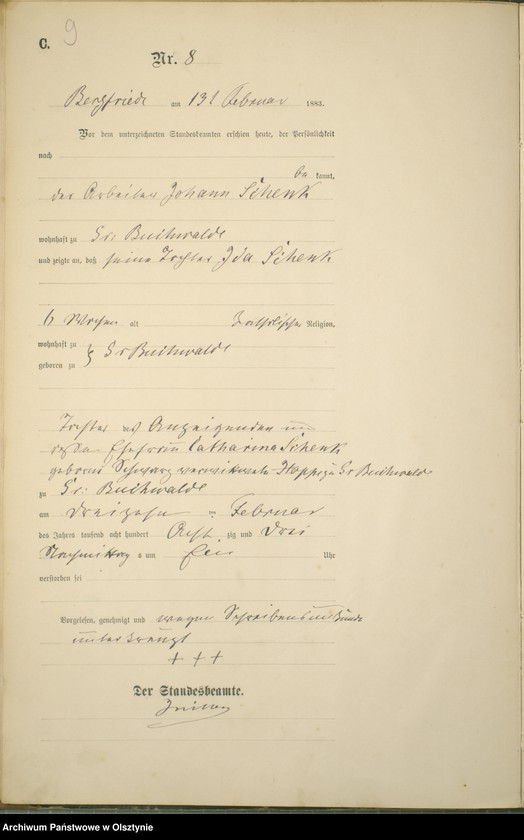 C. 9
Nr. 8
Bergfriede am 13t Februar 1883.
Vor dem unterzeichneten Standesbeamten erschien heute, der Persönlichkeit
nach
be kannt,
der Arbeiter Johann Schenk
wohnhaft zu Gr: Buchwalde
und zeigte an, daß seine Tochter Ida Schenk
6 Wochen alt Katholischer Religion,
wohnhaft zu
geboren zu } Gr Buchwalde
Tochter des Anzeigenden und
dessen Ehefrau Catharina Schenk
geborne Schwarz verwittwete zu Gr Buchwalde
zu Gr: Buchwalde
am dreizehn ten Februar
des Jahrs tausend acht hundert Acht zig und Drei
Nachmittag s um Ein Uhr
verstorben sei
Vorgelesen, genehmigt und wegen Schreibensunkunde
unterkreuzt
+ + +
Der Standesbeamte.
Archiwum Państwowe w Olsztynie